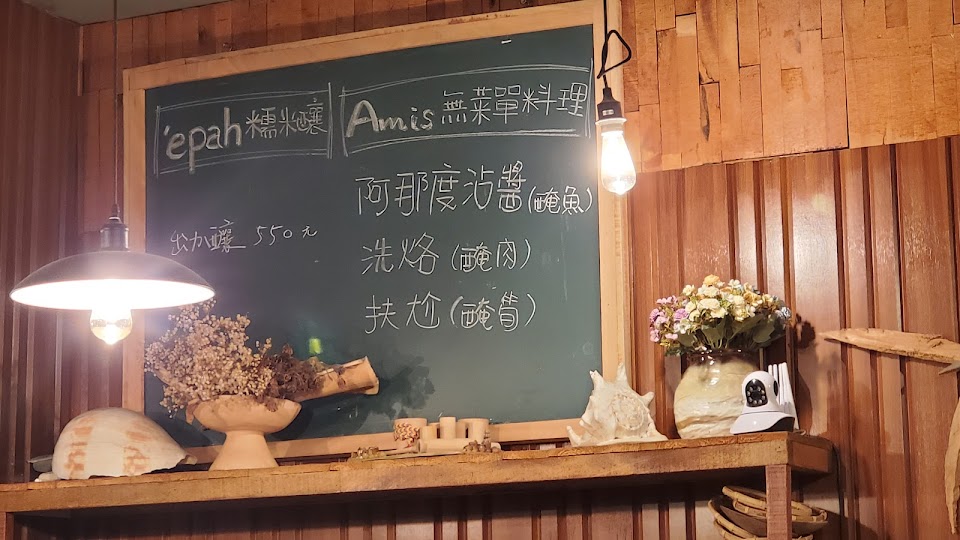 'epah糯米釀
出力釀 550元
Amis無菜單料理
阿那度沾醬(醃魚)
洗烙(醃肉)
扶尬(醃筍)